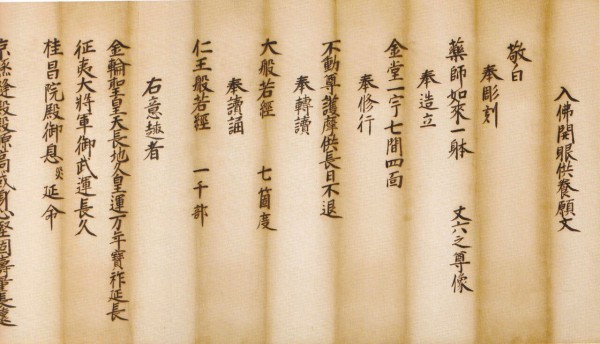 入佛開眼供養願文
敬白
奉彫刻
藥師如來一躰 丈六之尊像
奉造立
金堂一宇七間四面
奉修行
不動尊護摩供長日不退
奉轉讀
大般若經 七箇度
奉讀誦
仁王般若經 一千部
右意趣者
金輪聖皇天長地久皇運万年寶祚延長
征夷大將軍御武運長久
桂昌院殿御息災延命
身心堅固壽量長遠